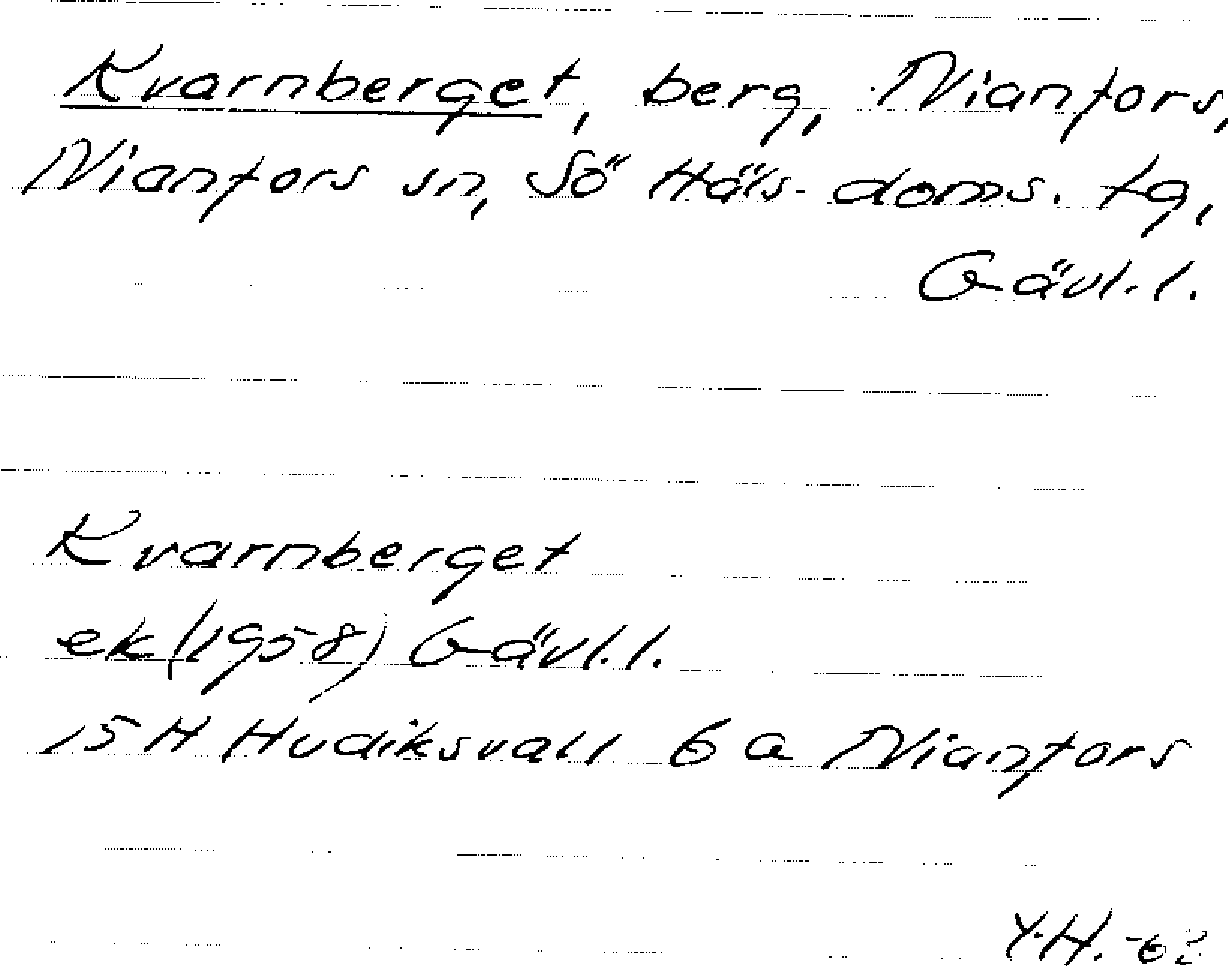 Kvarnberget, berg, Nianfors,
Nianfors sn, Sö Häls. doms. tg,
Gävl. l.
Kvarnberget
ek (1958) Gävl. l.
15 H Hudiksvall 6 a Nianfors
Y.H.